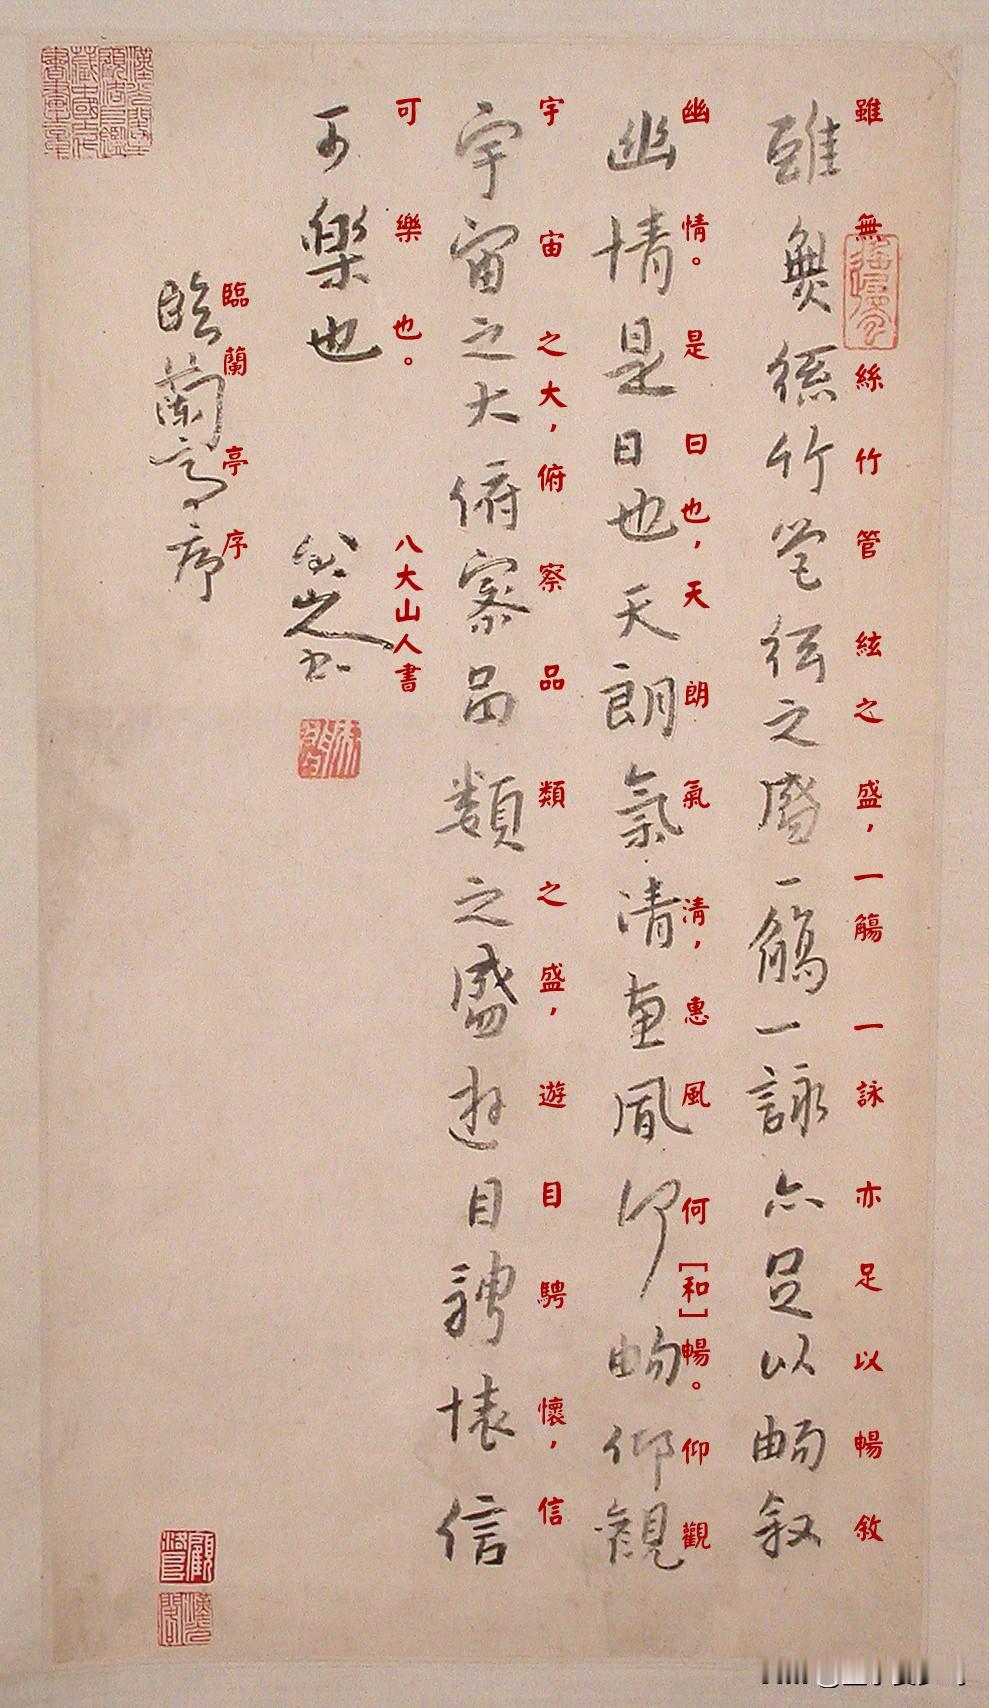 雖無絲竹管絃之盛,一觴一詠亦足以暢敘
雖無絲竹管絃之盛一觴一詠亦足以暢敘
幽情。是日也,天朗氣清,惠風何[和]暢。仰觀
幽情是日也天朗氣清惠風何暢仰觀
宇宙之大,俯察品類之盛,遊目騁懷,信
宇宙之大俯察品類之盛遊目騁懷信
可樂也。 八大山人書
可樂也 八大山人書
臨蘭亭序
臨蘭亭序
漢光閣主顧洛阜鑑藏中國古代書畫章
顧洛阜
漢光閣